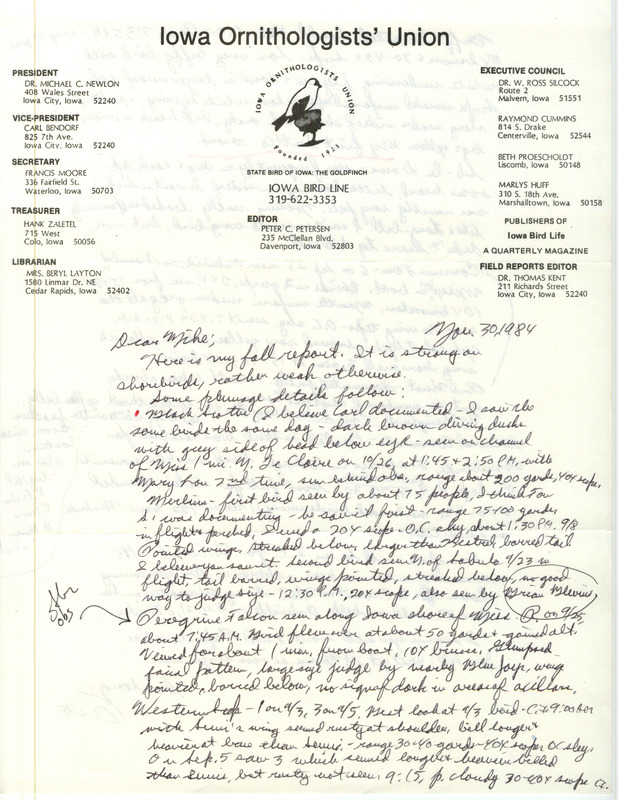 Iowa Ornithologists' Union
PRESIDENT
DR. MICHAEL C. NEWLON
408 Wales Street
Iowa City, Iowa 52240
VICE-PRESIDENT
CARL BENDORF
825 7th Ave.
Iowa City, Iowa 52240
SECRETARY
FRANCIS MOORE
336 Fairfield St.
Waterloo, Iowa 50703
TREASURER
HANK ZALETEL
715 West
Colo, Iowa 50056
LIBRARIAN
MRS. BERYL LAYTON
1580 Linmar Dr. NE
Cedar Rapids, Iowa 52402
IOWA ORNITHOLOGISTS UNION
Founded 1923
STATE BIRD OF IOWA: THE GOLDFINCH
IOWA BIRD LINE
319-622-3353
EDITOR
PETER C. PETERSEN
235 McClellan Blvd.
Davenport, Iowa 52803
EXECUTIVE COUNCIL
DR. W. ROSS SILCOCK
Route 2
Malvern, Iowa 51551
RAYMOND CUMMINS
814 S. Drake
Centerville, Iowa 52544
BETH PROESCHOLDT
Liscomb, Iowa 50148
MARLYS HUFF
310 S. 18th Ave.
Marshalltown, Iowa 50158
PUBLISHERS OF
Iowa Bird Life
A QUARTERLY MAGAZINE
FIELD REPORTS EDITOR
DR. THOMAS KENT
211 Richards Street
Iowa City, Iowa 52240
Nov 30, 1984
Dear Mike;
Here is my fall report. It is strong on
shorebirds, rather weak otherwise.
Some plumage details follow:
Black Scoter (I believe Carl documented - I saw the
same birds the same day - dark brown diving ducks
with grey side of head below eye - seen on channel
of Miss 1 mi N. Le Claire on 10/26, at 1:45 & 2:50 P.M. with
Mary Lou 2nd time, sun behind obs, range about 200 yards, 40X scope.
Merlin - first bird seen by about 75 people, I think you
& I was documenting - he saw it first - range 75-100 yards
in flight & perched, I used a 20X scope - O.C. sky, about 1:30 P.M. 9/8
Pointed wings, streaked below, larger than Kestrel, barred tail
I believe you saw it. Second bird seen N. of Sabula 9/23 in
flight, tail barred, wings pointed, streaked below, no good
way to judge size - 12:30 P.M., 20X scope, also seen by Brian Blevins
Peregrine Falcon seen along Iowa shore of Miss. R. on 9/25,
about 7:45 A.M. Bird flew over at about 50 yards & gained alt.
Viewed for about 1 min, from boat, 10X binocs, glimpsed
facial pattern, large size judge by nearby Blue Jays, wing
pointed, barred below, no sign of dark in area of axillars.
Western Sandp - 1 on 9/3, 3 on 9/5. Best look at 9/3 bird - C. & 9:00 A.M.
with Semi's wing seemed rusty at shoulder, bill longer &
heavier at base than Semis. - range 30-40 yards - 40X scope OC sky,
On Sep. 5 saw 3 which seemed longer & heavier billed
than Semis, but rusty not seen, 9:15, p. cloudy 30-40X scope